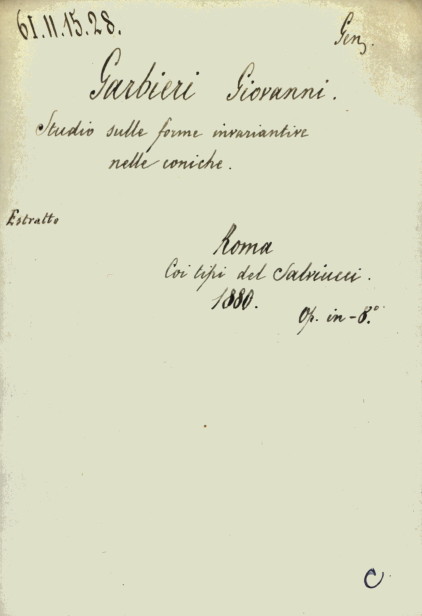 61.II.15.28.
Gen.
Garbieri Giovanni.
Studio sulle forme invariantive
nelle coniche.
Estratto
Roma
Coi tipi del Salviucci.
1880.
Op. in-8.°
C